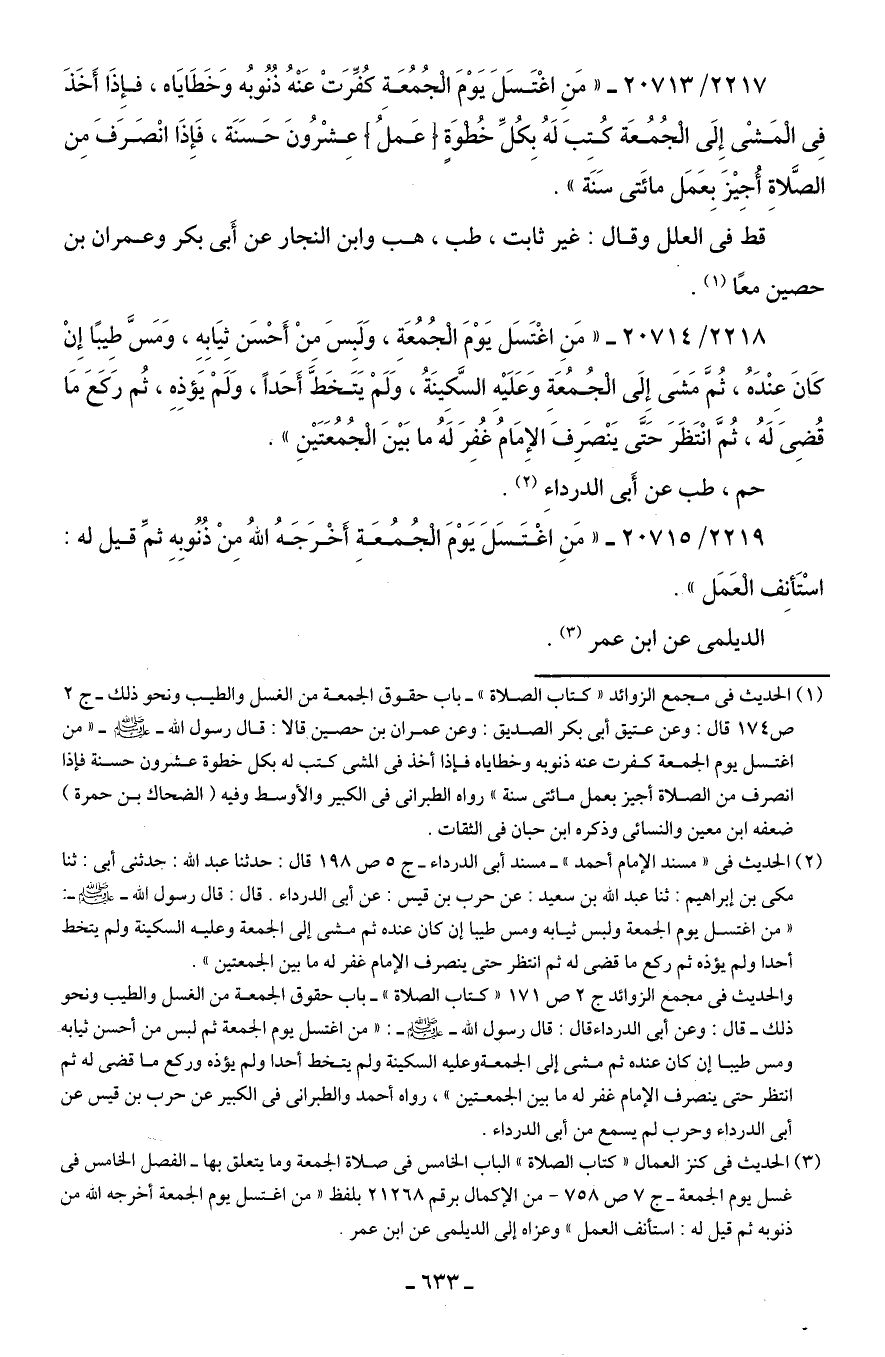 ٢٠٧١٣/٢٢١٧ ـ « مَنِ اغْتَسَلَ يَوْمَ الْجُمُعَةِ كُفِّرَتْ عَنْهُ ذُنُوبُه وَخَطَايَاه ، فَإِذَا أَخَذَ
فِى الْمَشْىِ إِلَى الْجُمُعَةِ كُتِبَ لَهُ بِكُلِّ خُطْوَةٍ { عَمَلُ } عِشْرُونَ حَسَنَة ، فَإِذَا انْصَرَفَ مِن
الصَّلَاةِ أُجِيْزَ بِعَمَلِ مائَتى سَنَة » .
قط فى العلل وقال : غير ثابت ، طب ، هب وابن النجار عن أَبى بكر وعمران بن
حصين معًا (١) .
٢٠٧١٤/٢٢١٨ ـ « مَنِ اغْتَسَلَ يَوْمَ الْجُمُعَةِ ، وَلَبِسَ مِنْ أَحْسَنِ ثِيَابِهِ ، وَمَسَّ طِيبًا إِنْ
كَانَ عِنْدَهُ ، ثُمَّ مَشَى إِلَى الْجُمُعَةِ وَعَلَيْهِ السَّكِينَةُ ، وَلَمْ يَتَخَطَّ أَحَداً ، وَلَمْ يَؤذِهِ ، ثُم رَكَعَ مَا
قُضِىَ لَهُ ، ثُمَّ انْتَظَرَ حَتَّى يَنْصَرِفَ الإِمَامُ غُفِرَ لَهُ ما بَيْنَ الْجُمُعَتَيْنِ » .
حم ، طب عن أَبى الدرداء (٢) .
٢٠٧١٥/٢٢١٩ ـ « مَنِ اغْتَسَلَ يَوْمَ الْجُمُعَةِ أَخْرَجَهُ اللهُ مِنْ ذُنُوبِهِ ثمِّ قيل له :
اسْتَأنِف الْعَمَل » .
الديلمى عن ابن عمر (٣) .
(١) الحديث فى مجمع الزوائد « كتاب الصلاة » ـ باب حقوق الجمعة من الغسل والطيب ونحو ذلك ـ ج ٢
ص١٧٤ قال : وعن عتيق أبى بكر الصديق : وعن عمران بن حصين قالا : قال رسول الله ـ ﷺ ـ « من
اغتسل يوم الجمعة كفرت عنه ذنوبه وخطاياه فإذا أخذ فى المشى كتب له بكل خطوة عشرون حسنة فإذا
انصرف من الصلاة أجيز بعمل مائتى سنة » رواه الطبرانى فى الكبير والأوسط وفيه ( الضحاك بن حمرة )
ضعفه ابن معين والنسائى وذكره ابن حبان فى الثقات .
(٢) الحديث فى « مسند الإمام أحمد » ـ مسند أبى الدرداء ـ ج ٥ ص ١٩٨ قال : حدثنا عبد الله : حدثنى أبى : ثنا
مكى بن إبراهيم : ثنا عبد الله بن سعيد : عن حرب بن قيس : عن أبى الدرداء . قال : قال رسول الله ـ ﷺ ـ:
« من اغتسل يوم الجمعة ولبس ثيابه ومس طيبا إن كان عنده ثم مشى إلى الجمعة وعليه السكينة ولم يتخط
أحدا ولم يؤذه ثم ركع ما قضى له ثم انتظر حتى ينصرف الإمام غفر له ما بين الجمعتين » .
والحديث فى مجمع الزوائد ج ٢ ص ١٧١ « كتاب الصلاة » ـ باب حقوق الجمعة من الغسل والطيب ونحو
ذلك ـ قال : وعن أبى الدرداءقال : قال رسول الله ـ ﷺ ـ : « من اغتسل يوم الجمعة ثم لبس من أحسن ثيابه
ومس طيبا إن كان عنده ثم مشى إلى الجمعةوعليه السكينة ولم يتخط أحدا ولم يؤذه وركع ما قضى له ثم
انتظر حتى ينصرف الإمام غفر له ما بين الجمعتين » ، رواه أحمد والطبرانى فى الكبير عن حرب بن قيس عن
أبى الدرداء وحرب لم يسمع من أبى الدرداء .
(٣) الحديث فى كنز العمال « كتاب الصلاة » الباب الخامس فى صلاة الجمعة وما يتعلق بها ـ الفصل الخامس فى
غسل يوم الجمعة ـ ج ٧ ص ٧٥٨ - من الإكمال برقم ٢١٢٦٨ بلفظ « من اغتسل يوم الجمعة أخرجه الله من
ذنوبه ثم قيل له : استأنف العمل » وعزاه إلى الديلمى عن ابن عمر .
ـ ٦٣٣ ـ